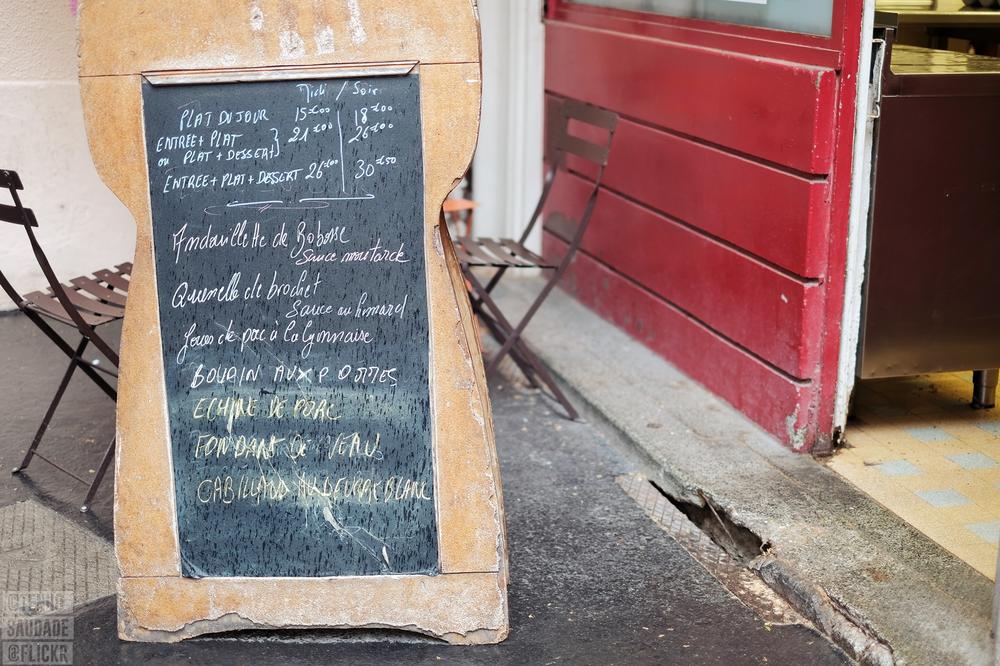 Midi / Soir
PLAT DU JOUR 15€00 18€00
ENTRÉE + PLAT } 21€00 26€00
ou PLAT + DESSERT
ENTREE + PLAT + DESSERT 26€00 30€50
Andouillette de Bobosse
Sauce moutarde
Quenelle de brochet
Sauce au homard
Joues de porc à la lyonnaise
BOUDIN AUX POMMES
ECHINE DE PORC
FONDANT DE VEAU
CABILLAUD AU BEURRE BLANC
SAUDADE
@FLICKR